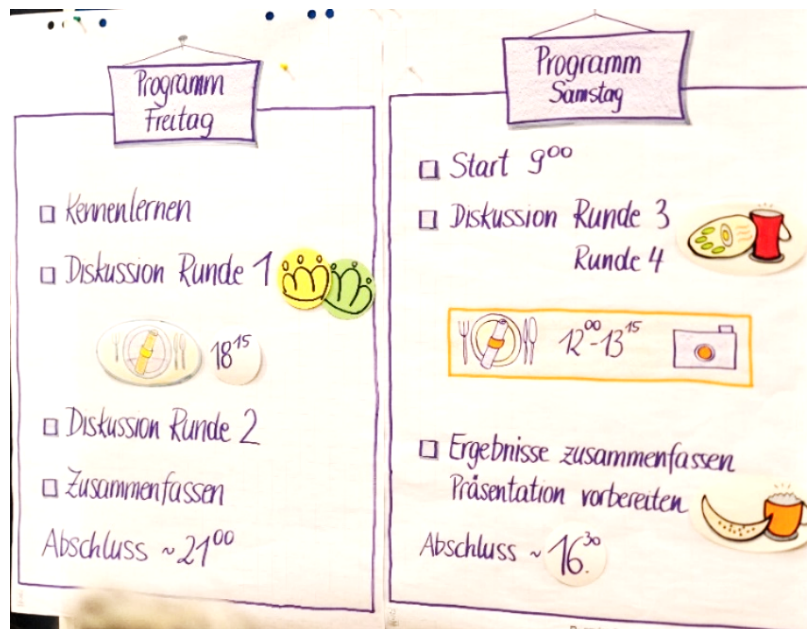 Programm
Freitag
Kennenlernen
Diskussion Runde 1
18 15
Diskussion Runde 2
Zusammenfassen
Abschluss ~ 21 00
Programm
Samstag
Start 9 00
Diskussion Runde 3
Runde 4
12 00 - 13 15
Ergebnisse zusammenfassen
Präsentation vorbereiten
Abschluss ~ 16 30